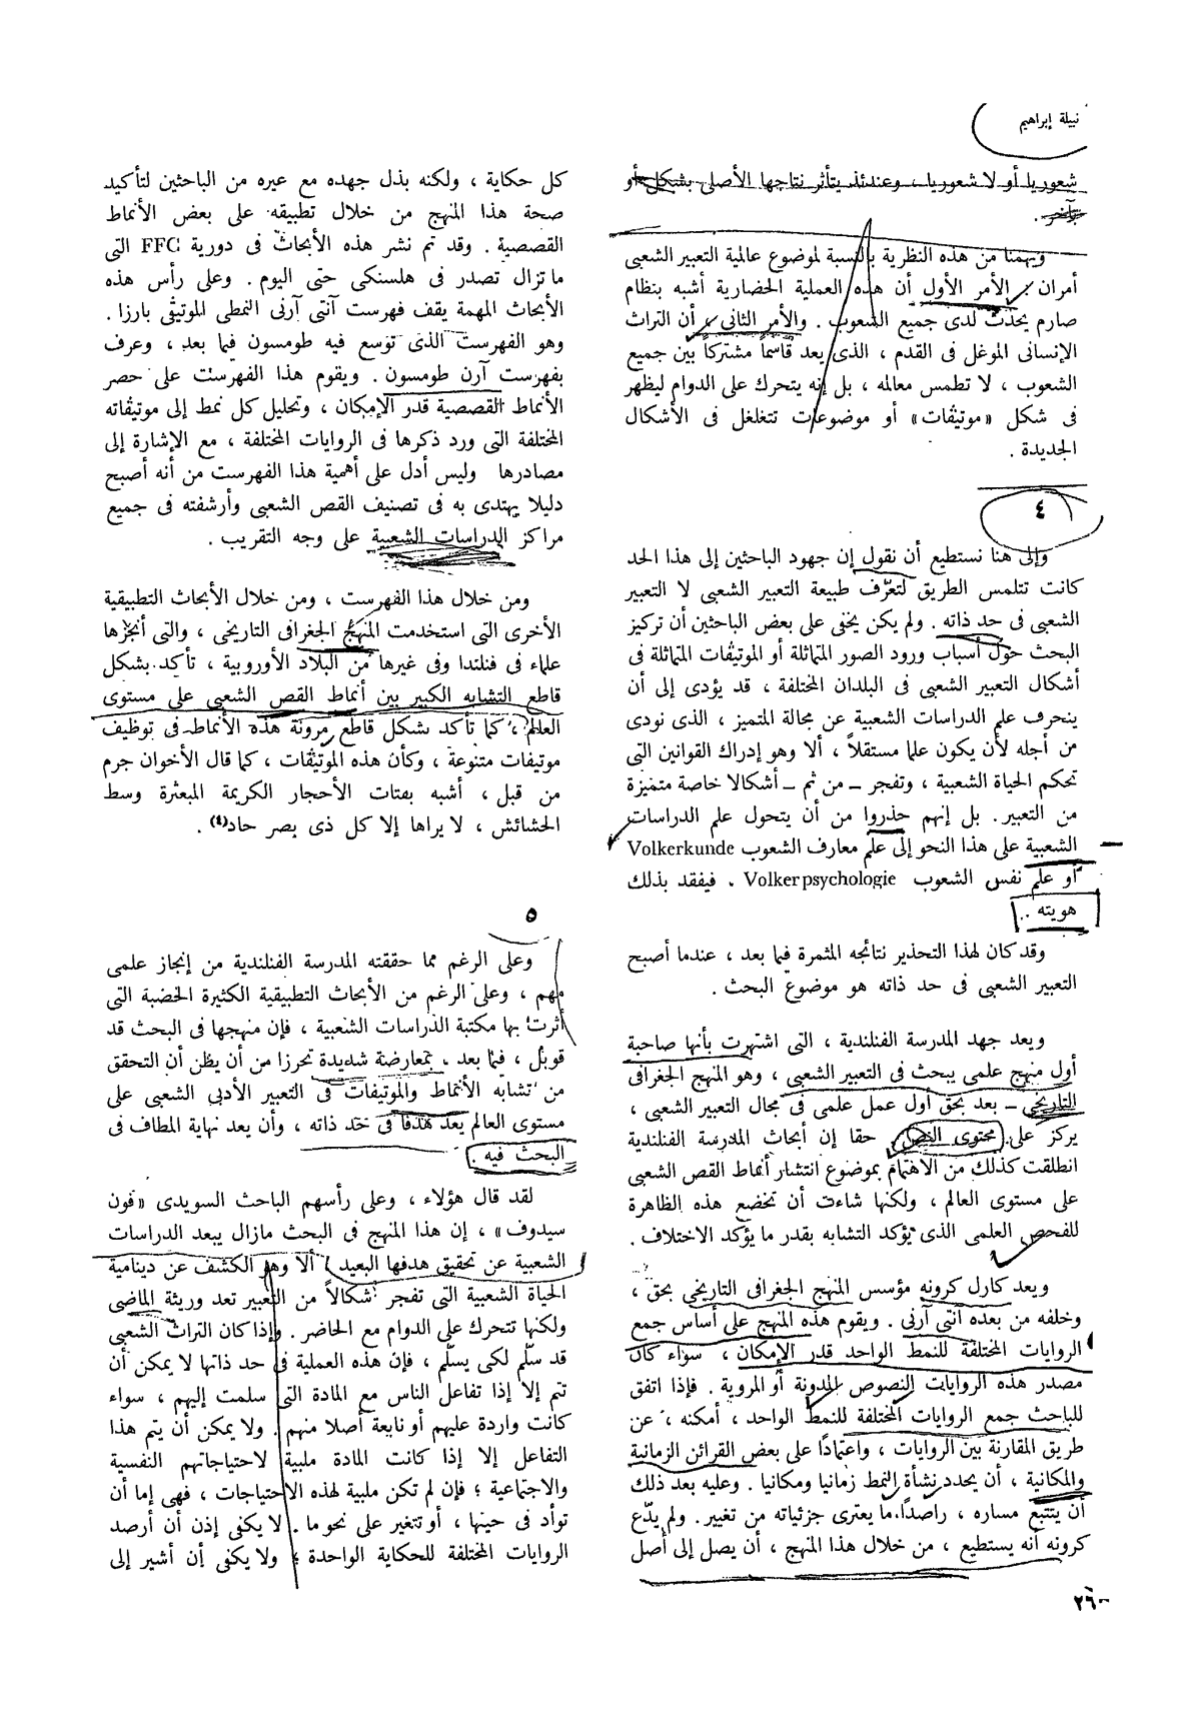 نبيلة إبراهيم
شعوريا أو لا شعوريا ، وعندئذ يتأثر نتاجها الأصلى بشكل أو
بآخر .
ويهمنا من هذه النظرية بالنسبة لموضوع عالمية التعبير الشعبى
أمران : الأمر الأول أن هذه العملية الحضارية أشبه بنظام
صارم يحدث لدى جميع الشعوب . والأمر الثانى ، أن التراث
الإنسانى الموغل فى القدم ، الذى يعد قاسماً مشتركاً بين جميع
الشعوب ، لا تطمس معالمه ، بل إنه يتحرك على الدوام ليظهر
فى شكل «موتيفات» أو موضوعات تتغلغل فى الأشكال
الجديدة .
٤
وإلى هنا نستطيع أن نقول إن جهود الباحثين إلى هذا الحد
كانت تتلمس الطريق لتعرّف طبيعة التعبير الشعبى لا التعبير
الشعبى فى حد ذاته . ولم يكن يخفى على بعض الباحثين أن تركيز
البحث حول أسباب ورود الصور المتماثلة أو الموتيفات المتماثلة فى
أشكال التعبير الشعبى فى البلدان المختلفة ، قد يؤدى إلى أن
ينحرف علم الدراسات الشعبية عن مجالة المتميز ، الذى نودى
من أجله لأن يكون علما مستقلاً ، ألا وهو إدراك القوانين التى
تحكم الحياة الشعبية ، وتفجر – من ثم – أشكالا خاصة متميزة
من التعبير . بل إنهم حذروا من أن يتحول علم الدراسات
الشعبية على هذا النحو إلى علم معارف الشعوب Volkerkunde
أو علم نفس الشعوب Volkerpsychologie . فيفقد بذلك
هويته .
وقد كان لهذا التحذير نتائجه المثمرة فيما بعد ، عندما أصبح
التعبير الشعبى فى حد ذاته هو موضوع البحث .
ويعد جهد المدرسة الفنلندية ، التى اشتهرت بأنها صاحبة
أول منهج علمى يبحث فى التعبير الشعبى ، وهو المنهج الجغرافى
التاريخى – يعد بحق أول عمل علمى فى مجال التعبير الشعبى ،
يركز على محتوى النص . حقا إن أبحاث المدرسة الفنلندية
انطلقت كذلك من الاهتمام بموضوع انتشار أنماط القص الشعبى
على مستوى العالم ، ولكنها شاءت أن تخضع هذه الظاهرة
للفحص العلمى الذى يؤكد التشابه بقدر ما يؤكد الاختلاف .
ويعد كارل كرونه مؤسس المنهج الجغرافى التاريخى بحق ،
وخلفه من بعده آنتى آرنى . ويقوم هذه المنهج على أساس جمع
الروايات المختلفة للنمط الواحد قدر الإمكان ، سواء كان
مصدر هذه الروايات النصوص المدونة أو المروية . فإذا اتفق
للباحث جمع الروايات المختلفة للنمط الواحد ، أمكنه ، عن
طريق المقارنة بين الروايات ، واعتمادًا على بعض القرائن الزمانية
والمكانية ، أن يحدد نشأة النمط زمانيا ومكانيا . وعليه بعد ذلك
أن يتتبع مساره ، راصداً ما يعترى جزئياته من تغيير . ولم يدّع
كرونه أنه يستطيع ، من خلال هذا المنهج ، أن يصل إلى أصل
كل حكاية ، ولكنه بذل جهده مع عيره من الباحثين لتأكيد
صحة هذا المنهج من خلال تطبيقه على بعض الأنماط
القصصية . وقد تم نشر هذه الأبحاث فى دورية FFC التى
ما تزال تصدر فى هلسنكى حتى اليوم . وعلى رأس هذه
الأبحاث المهمة يقف فهرست آنتى آرنى النمطى الموتيفى بارزا .
وهو الفهرست الذى توسع فيه طومسون فيما بعد ، وعرف
بفهرست آرن طومسون . ويقوم هذا الفهرست على حصر
الأنماط القصصية قدر الإمكان ، وتحليل كل نمط إلى موتيفاته
المختلفة التى ورد ذكرها فى الروايات المختلفة ، مع الإشارة إلى
مصادرها وليس أدل على أهمية هذا الفهرست من أنه أصبح
دليلا يهتدى به فى تصنيف القص الشعبى وأرشفته فى جميع
مراكز الدراسات الشعبية على وجه التقريب .
ومن خلال هذا الفهرست ، ومن خلال الأبحاث التطبيقية
الأخرى التى استخدمت المنهج الجغرافى التاريخى ، والتى أنجزها
علماء فى فنلندا وفى غيرها من البلاد الأوروبية ، تأكد بشكل
قاطع التشابه الكبير بين أنماط القص الشعبى على مستوى
العالم ، كما تأكد بشكل قاطع مرونة هذه الأنماط فى توظيف
موتيفات متنوعة ، وكأن هذه الموتيفات ، كما قال الأخوان جرم
من قبل ، أشبه بفتات الأحجار الكريمة المبعثرة وسط
الحشائش ، لا يراها إلا كل ذى بصر حاد(٤) .
٥
وعلى الرغم مما حققته المدرسة الفنلندية من إنجاز علمى
مهم ، وعلى الرغم من الأبحاث التطبيقية الكثيرة الخصبة التى
أثرت بها مكتبة الدراسات الشعبية ، فإن منهجها فى البحث قد
قوبل ، فيما بعد ، بمعارضة شديدة تحرزا من أن يظن أن التحقق
من تشابه الأنماط والموتيفات فى التعبير الأدبى الشعبى على
مستوى العالم يعد هدفا فى حد ذاته ، وأن يعد نهاية المطاف فى
البحث فيه .
لقد قال هؤلاء ، وعلى رأسهم الباحث السويدى «فون
سيدوف» ، إن هذا المنهج فى البحث مازال يبعد الدراسات
الشعبية عن تحقيق هدفها البعيد ، ألا وهو الكشف عن دينامية
الحياة الشعبية التى تفجر أشكالاً من التعبير تعد وريثة الماضى
ولكنها تتحرك على الدوام مع الحاضر . وإذا كان التراث الشعبى
قد سلّم لكى يسلّم ، فإن هذه العملية فى حد ذاتها لا يمكن أن
تتم إلا إذا تفاعل الناس مع المادة التى سلمت إليهم ، سواء
كانت واردة عليهم أو نابعة أصلا منهم . ولا يمكن أن يتم هذا
التفاعل إلا إذا كانت المادة ملبية لاحتياجاتهم النفسية
والاجتماعية ؛ فإن لم تكن ملبية لهذه الاحتياجات ، فهى إما أن
توأد فى حينها ، أو تتغير على نحو ما . لا يكفى إذن أن أرصد
الروايات المختلفة للحكاية الواحدة ؛ ولا يكفى أن أشير إلى
٢٦٠